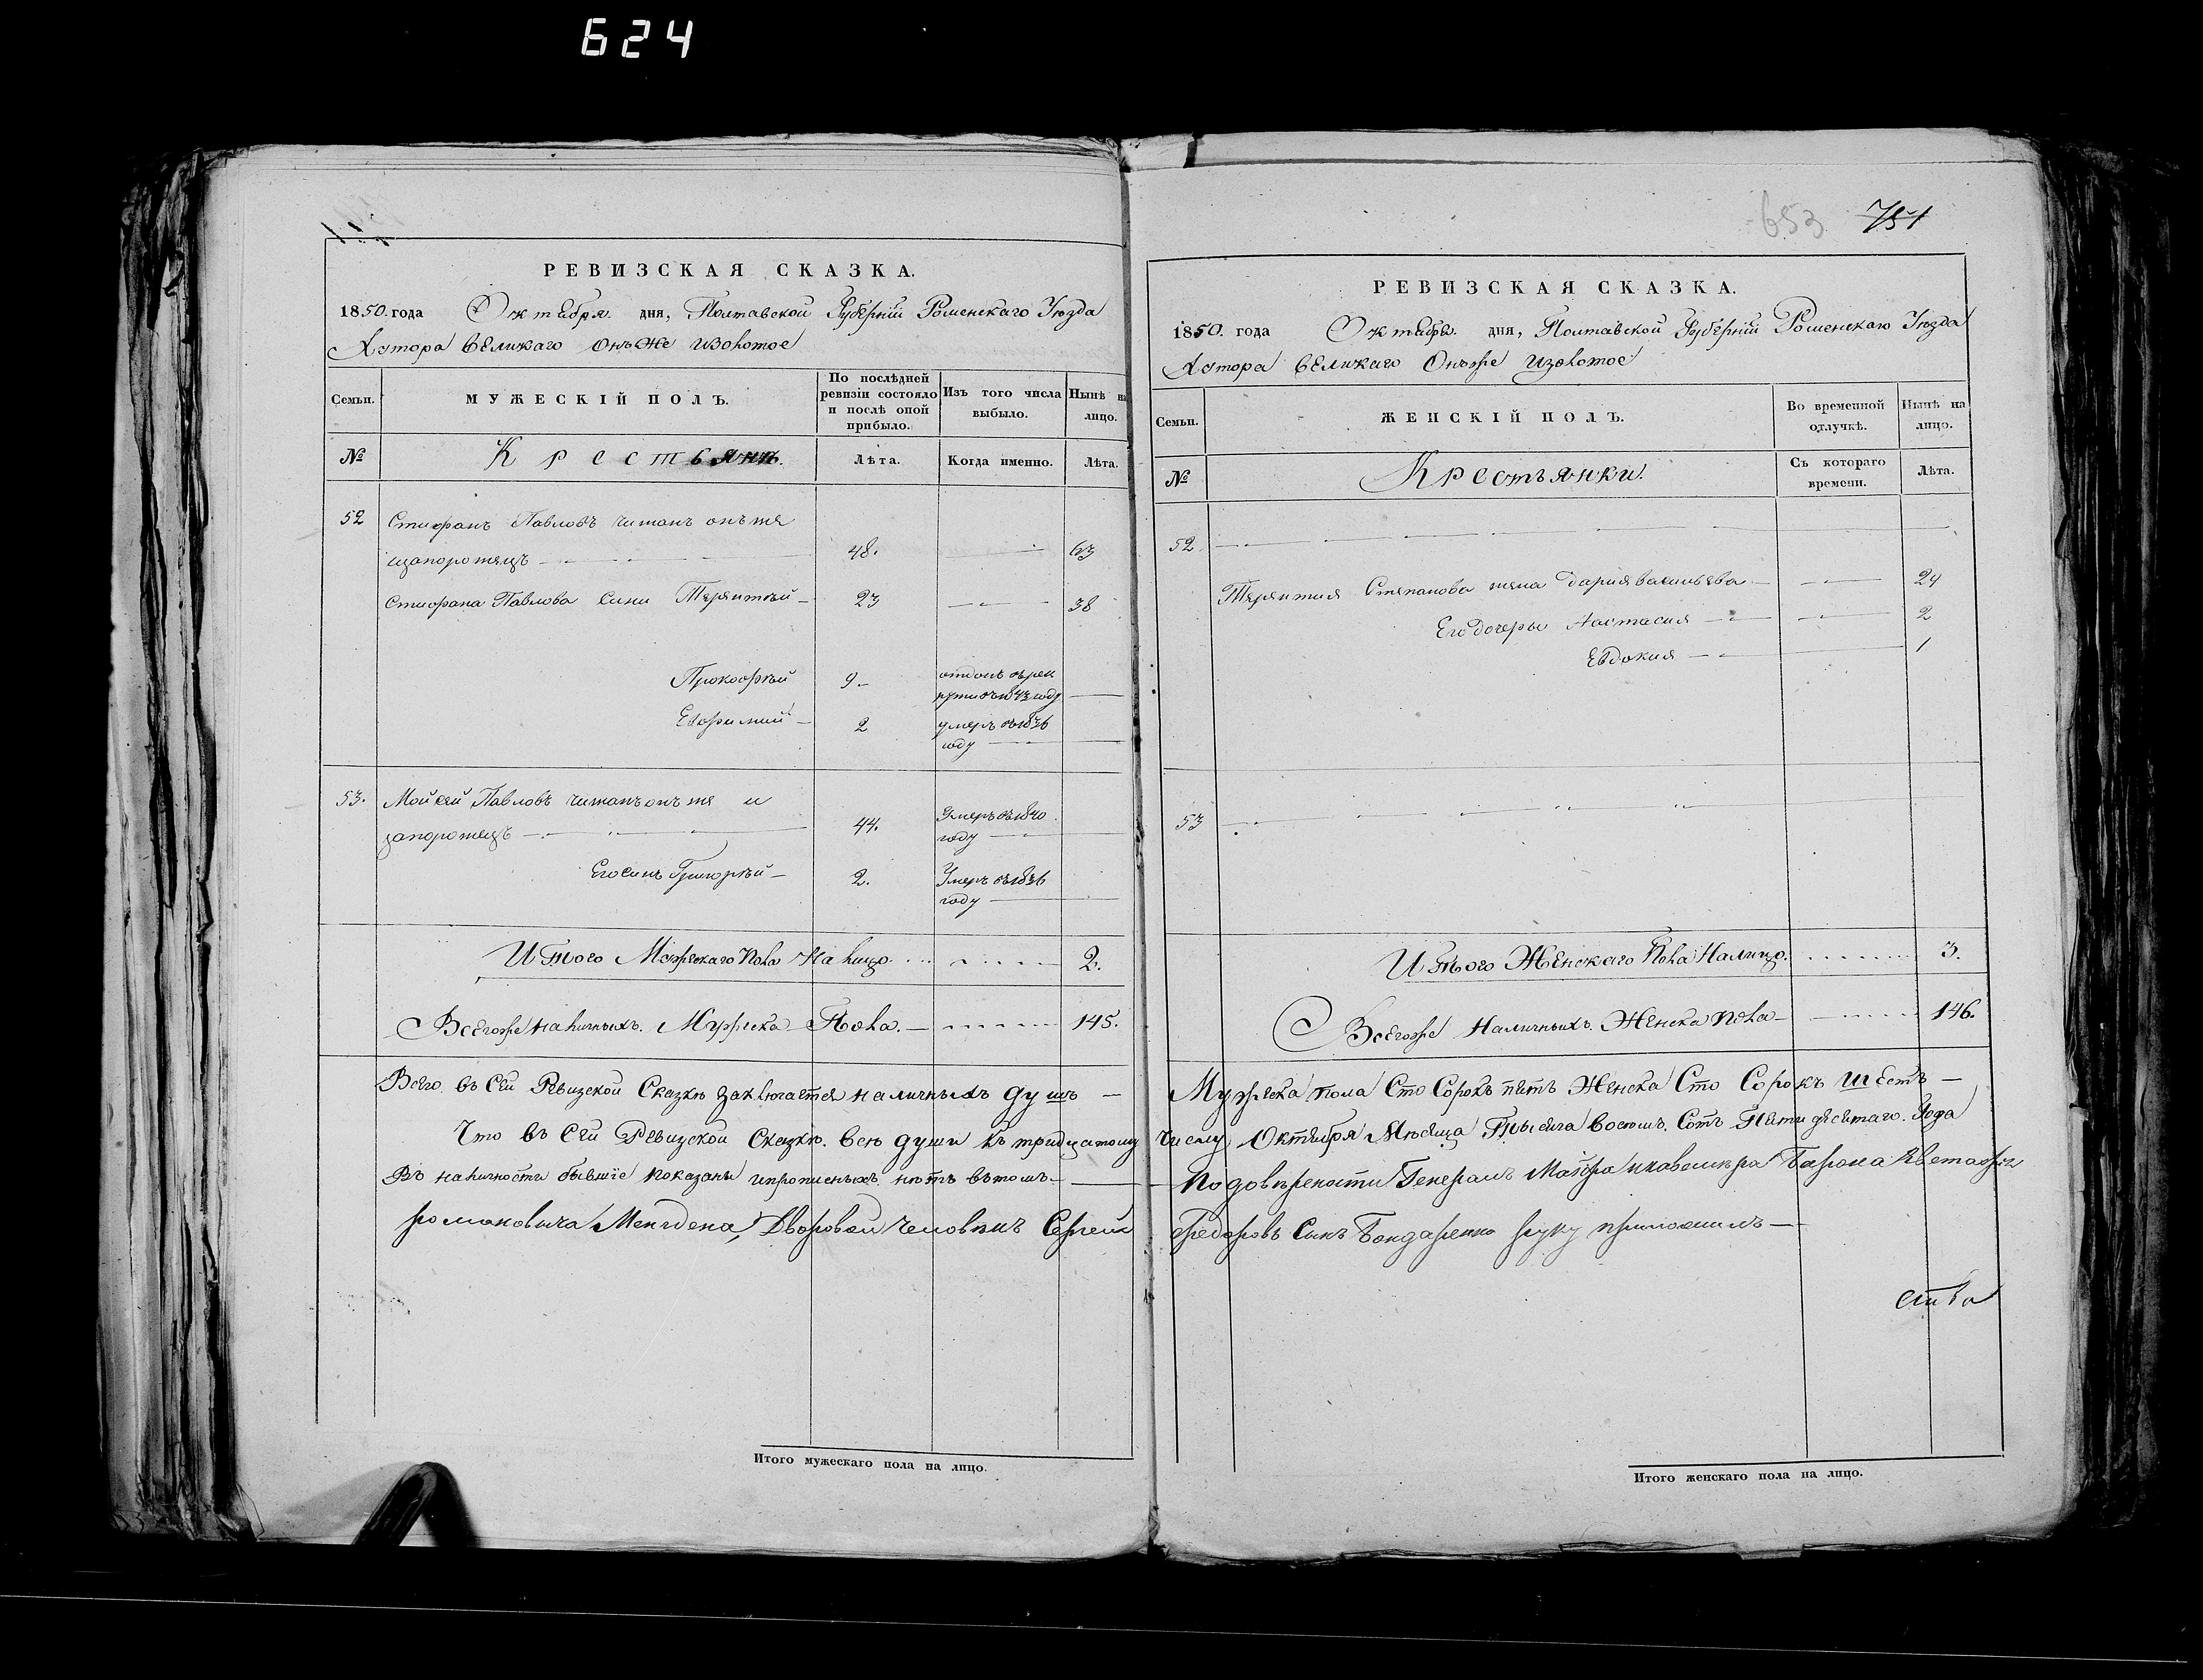 624
РЕВИЗСКАЯ СКАЗКА.
1850. года Октября дня, Полтавской Губерніи Роменскаго Уѣзда
Хутора Великаго онъже изолотое
Семьи.
МУЖЕСКІЙ ПОЛЪ.
По послѣдней ревизіи состояло и послѣ оной прибыло.
Изъ того числа выбыло.
Нынѣ на лицо.
№
Крестьянъ.
Лѣта.
Когда именно.
Лѣта.
52 Стифанъ Павловъ читанъ онъже
ищапорожецъ 48. 63
Стифана Павлова Сини Терентьей 23 38
Прокофьей 9 отданъ въ рек
рути въ 1843 году
Евфимий 2 умеръ въ 1836
году
53. Мойсей Павловъ читанъ онъ же и
запорожецъ 44. Умеръ въ 1840
году
Его Синъ Григорьей 2. Умеръ въ 1836
году
Итого Мужескаго Пола На лицо 2.
Всегоже наличныхъ. Мужска Пола. 145.
Всего въ Сей Ревизской Сказкѣ заключается наличныхъ душъ
Что въ Сей Ревизской Сказкѣ. всѣ души къ тридцатому
Въ наличности бывшіе показаны ипрописныхъ нѣтъ вътомъ.
романовича Менгдена, Дворовой человекъ Сергей
Итого мужескаго пола на лицо.
653 751
РЕВИЗСКАЯ СКАЗКА.
1850. года Октября дня, Полтавской Губерніи Роменскаго Уѣзда
Хутора Великаго Онъже изолотое
Семьи.
ЖЕНСКІЙ ПОЛЪ.
Во временной отлучкѣ.
Нынѣ на лицо.
№
Крестьянки.
Съ котораго времени.
Лѣта.
52
Терентия Степанова жена Дария васильева 24
Его Дочеры Настасия 2
Евдокия 1
53
Итого Женскаго Пола Налицо. 3.
Всегоже Наличныхъ. Женска пола 146.
Мужеска пола Сто Сорокъ пять Женска Сто Сорокъ шесть
числу Октября Мѣсяца Тысяча восемь Сотъ Пятидесятаго. Года
По довѣренности Генералъ Маіора икавелира Барона Евстафия
Федоровъ Сынъ Бондаренко руку приложилъ
ства
Итого женскаго пола на лицо.